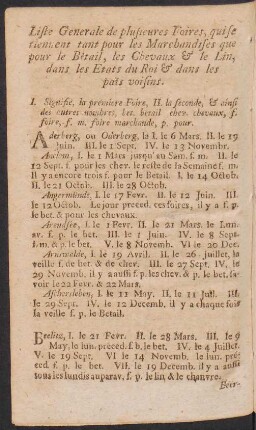 Liste Generale de plusieures Foires, qui se
tiennent tant pour les Marchandises que
pour le Bétail, les Chevaux & le Lin,
dans les Etats du Roi & dans les
païs voisins.
I. Signifie, la première Foire, II. la seconde, & ainsi
des autres nombres, bet. betail chev. chevaux, f.
foire, f. m. foire marchande, p. pour.
Aderberg, ou Oderberg, la I. le 6 Mars. II. le 19
juin. III. le 1 Sept. IV. le 13 Novembr.
le I. le 1 Mars jusqu'au Sam. f. m. II. le
12 Sept. f. pour les chev. le reste de la Semaine f. m.
Il y a encore trois f. pour le Betail. I. le 14 Octob.
II. le 21 Octob. III. le 28 Octob.
I. le 19 Fevr. II. le 12 Juin. III.
le 12 Octob. Le jour preced. ces foires, il y a f. p.
le bet. & pour les chevaux.
I. le 1 Fevr. II. le 21 Mars. le Lun.
av. f. p. le bet. III. le 1 Juin. IV. le 8 Sept.
f. m. & p. le bet. V. le 8 Novemb. VI le 20 Dec.
I. le 19 Avril. II. le 26. juillet, la
veille f. de bet. & de chev. III. le 27 Sept. IV. le
29 Novemb. il y a aussi f. p. les chev. & p. le bet. sa-
voir le 22 Fevr. & 22 Mars.
Aschersleben, I. le 11 May. II. le 11 Juil. III.
le 29 Sept. IV. le 12 Decemb. il y a chaque fois
la veille f. p. le Betail.
Beelitz, I. le 21 Fevr. II. le 28 Mars. III. le 9
May, le lun. préced. f. b. le bet. IV. le 4 Juillet.
V. le 19 Sept. VI le 14 Novemb. le lun. pré-
ced f. p. le bet. VII. le 19 Decemb. il y a aussi
tous les lundis auparav. f. p. le lin, & le chanvre.